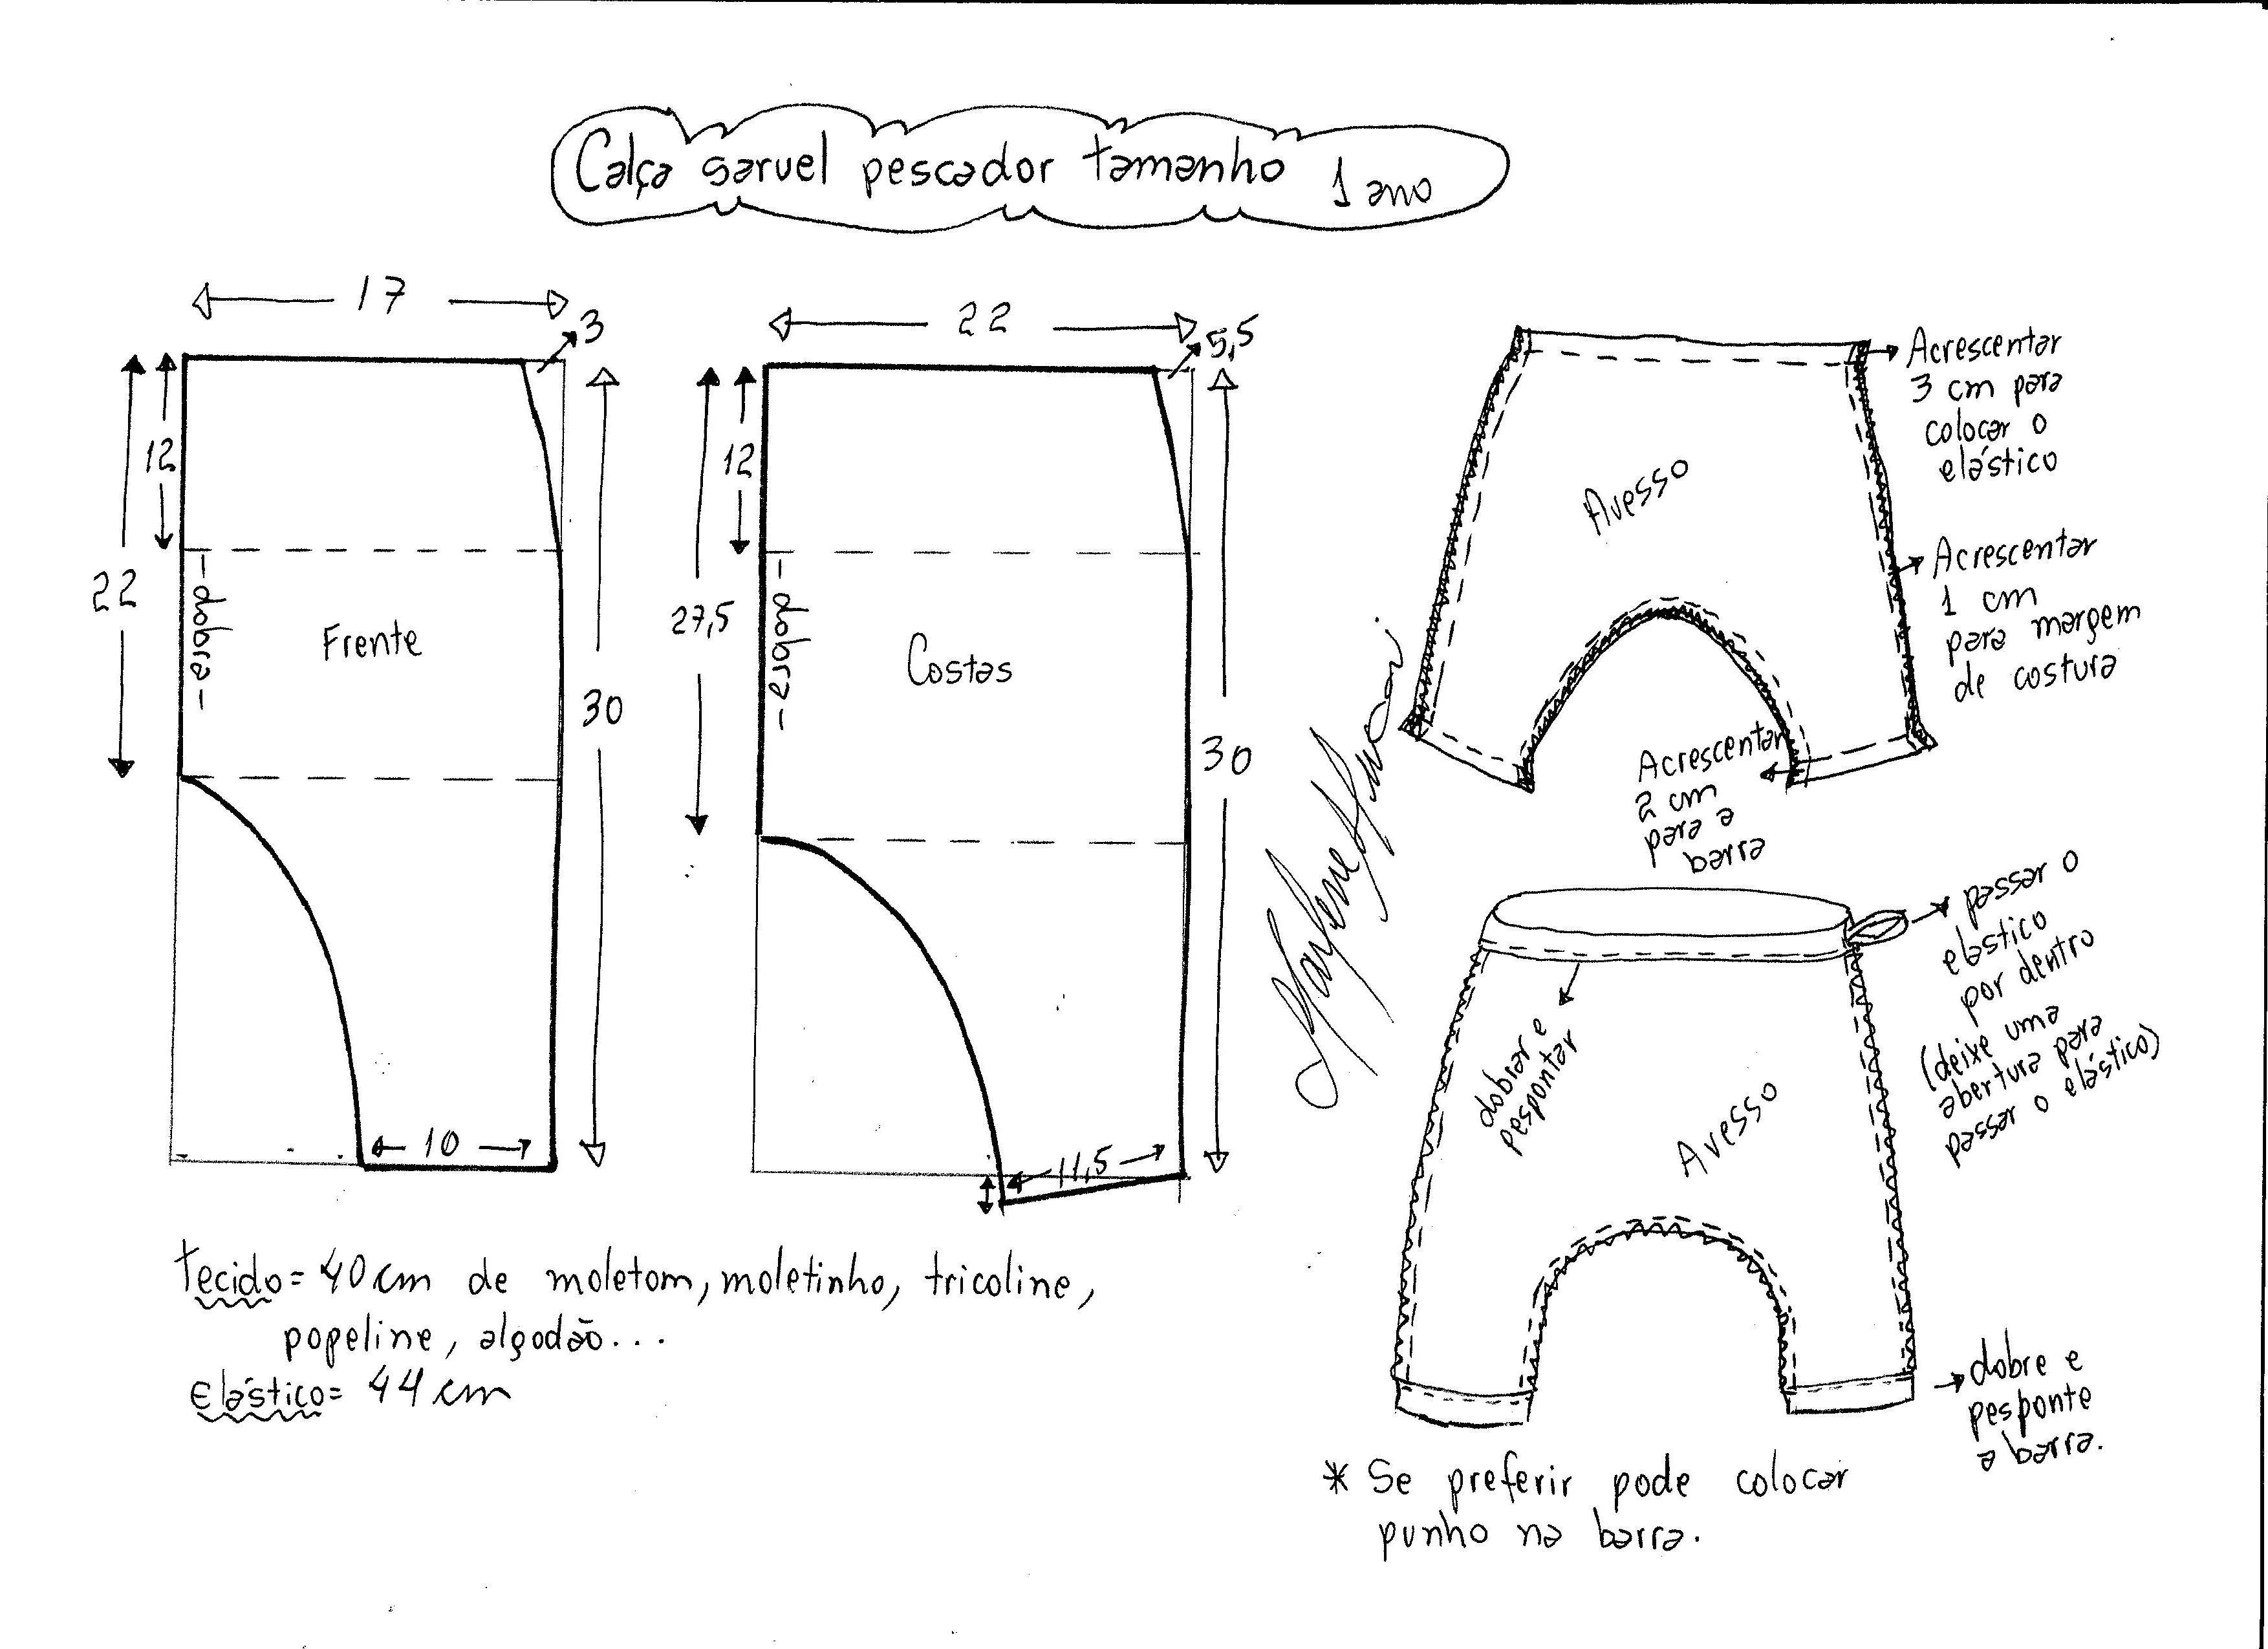 Calça saruel pescador tamanho 1 ano
17
3
12
22
30
-dobra-
Frente
10
22
5,5
12
27,5
30
-dobra-
Costas
11,5
tecido= 40 cm de moletom, moletinho, tricoline,
popeline, algodão...
elástico= 44 cm
Avesso
Acrescentar
3 cm para
colocar o
elástico
Acrescentar
1 cm
para margem
de costura
Acrescentar
2 cm
para a
barra
passar o
elastico
por dentro
(deixe uma
abertura para
passar o elástico)
dobrar e
pespontar
Avesso
dobre e
pesponte
a barra.
* Se preferir pode colocar
punho na barra.